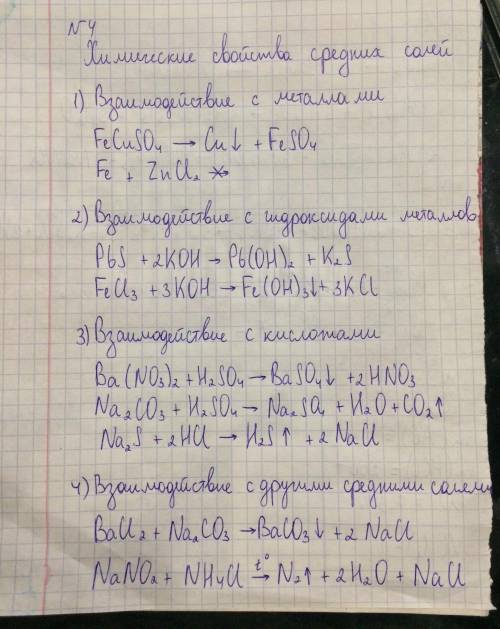 №4
Химические свойства средних солей
1) Взаимодействие с металлами
FeCuSO₄ → Cu↓ + FeSO₄
Fe + ZnCl₂ ↛
2) Взаимодействие с гидроксидами металлов
PbS + 2KOH → Pb(OH)₂ + K₂S
FeCl₃ + 3KOH → Fe(OH)₃↓ + 3KCl
3) Взаимодействие с кислотами
Ba(NO₃)₂ + H₂SO₄ → BaSO₄↓ + 2HNO₃
Na₂CO₃ + H₂SO₄ → Na₂SO₄ + H₂O + CO₂↑
Na₂S + 2HCl → H₂S↑ + 2NaCl
4) Взаимодействие с другими средними солями
BaCl₂ + Na₂CO₃ → BaCO₃↓ + 2NaCl
NaNO₂ + NH₄Cl →t° N₂↑ + 2H₂O + NaCl